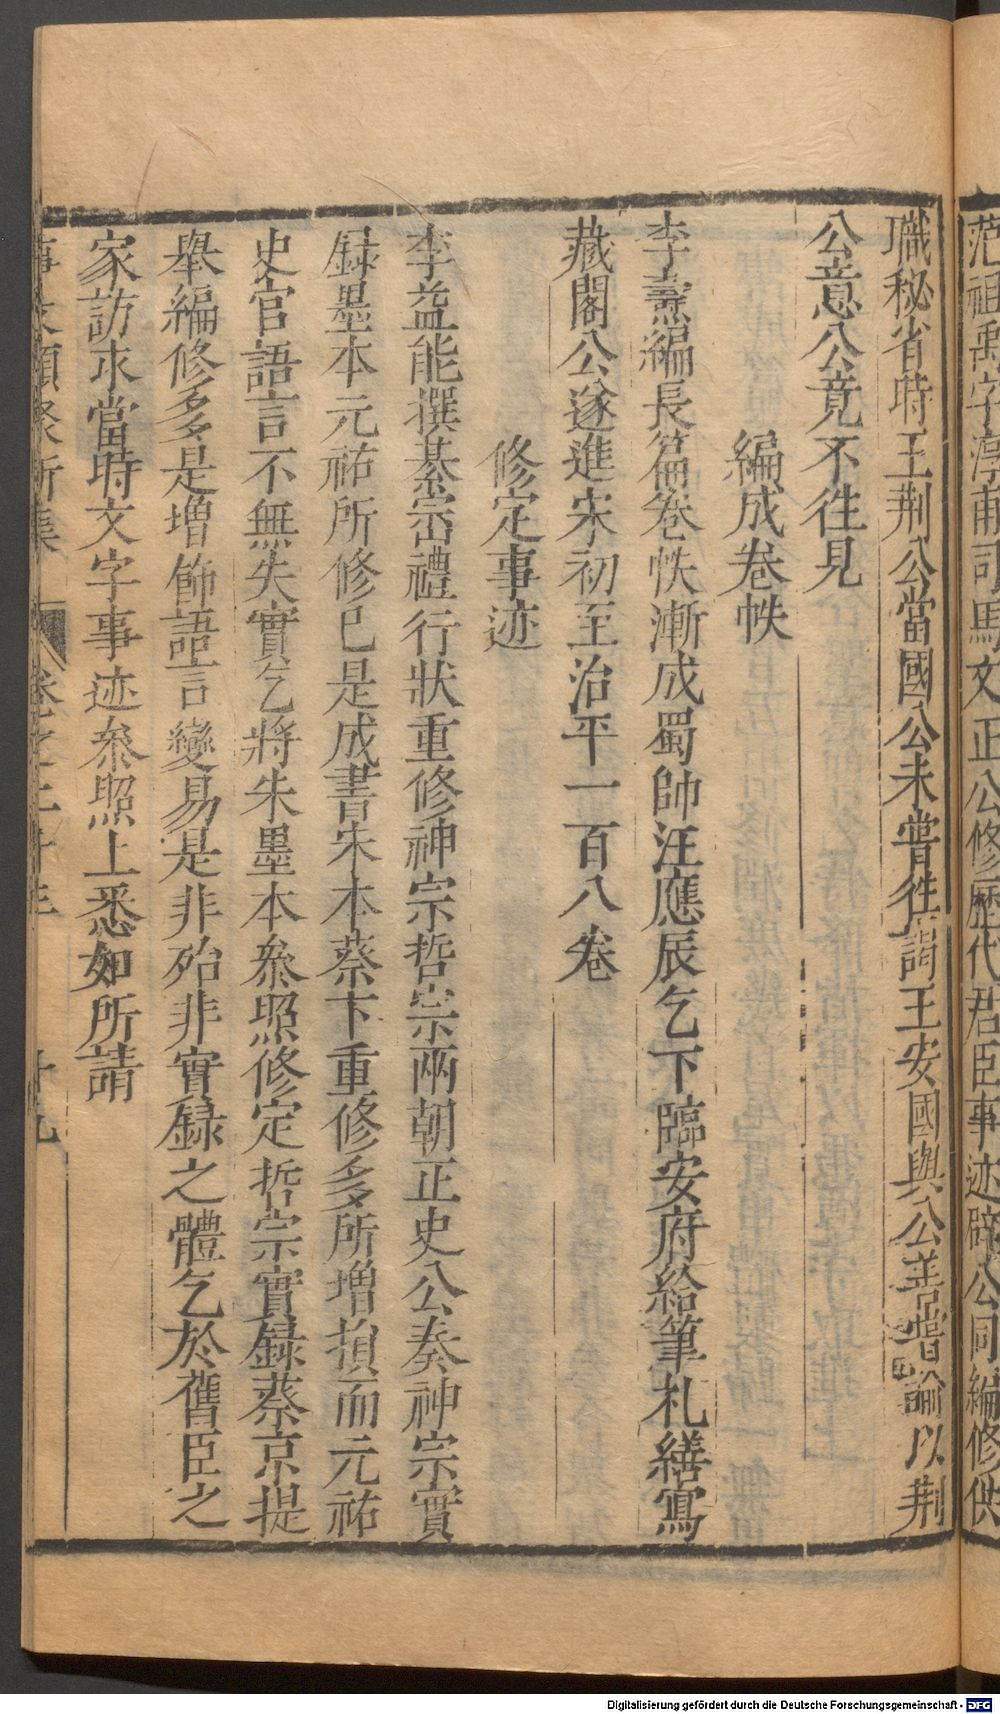 范祖禹字淳甫司馬文正公修歷代君臣事迹辟公同編修供
職秘省時王荆公當國公未嘗徃謁王安國與公善嘗諭以荆
公意公竟不徃見
編成卷帙
李燾編長篇卷帙漸成蜀帥汪應辰乞下臨安府給筆札繕寫
藏閣公遂進宋初至治平一百八卷
修定事迹
李益能撰綦崈禮行狀重修神宗哲宗兩朝正史公奏神宗實
録墨本元祐所修已是成書朱本蔡卞重修多所增損而元祐
史官語言不無失實乞將朱墨本叅照修定哲宗實録蔡京提
舉編修多是增飾語言變易是非殆非實録之體乞於舊臣之
家訪求當時文字事迹叅照上悉如所請
事文類聚新集
Digitalisierung gefördert durch die Deutsche Forschungsgemeinschaft - DFG